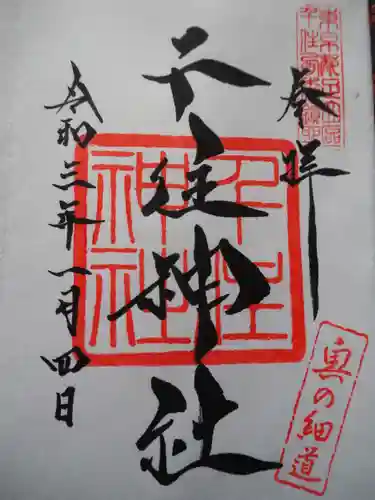 奉拝
千住神社
令和三年一月四日
千住
神社
奥の細道